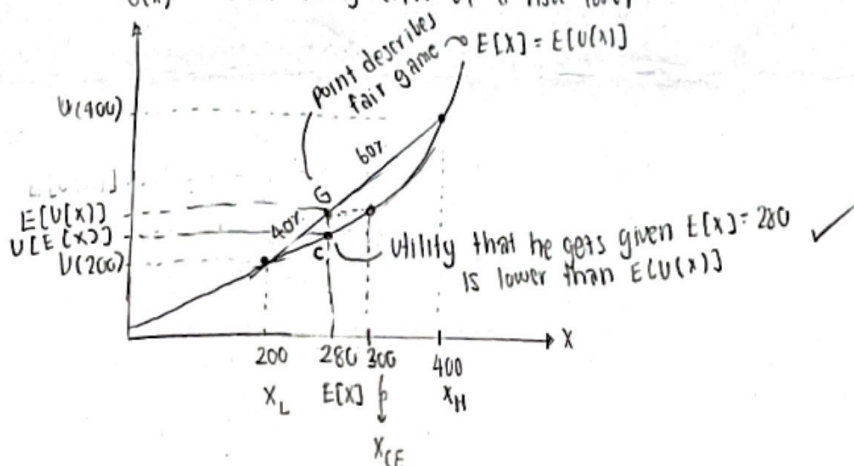 point describes
fair game
E[X] = E[U(X)]
U(400)
60%
G
E[U(X)]
40%
U[E(X)]
U(200)
c
utility that he gets given E[X] = 280
is lower than E[U(X)]
X
200 280 300 400
X_L E[X] X_H
X_CE